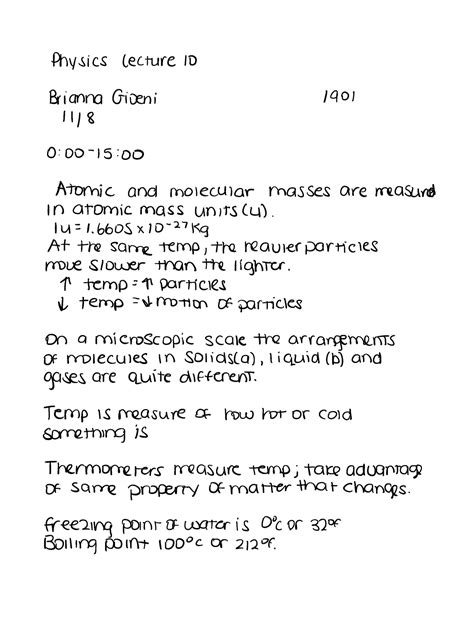 Physics Lecture 10
Brianna Gioeni 1901
11/8
0:00-15:00
Atomic and molecular masses are measured
in atomic mass units (u).
1u = 1.6605 x 10⁻²⁷ kg
At the same temp, the heavier particles
move slower than the lighter.
↑ temp = ↑ particles
↓ temp = ↓ motion of particles
On a microscopic scale the arrangements
of molecules in solids(a), liquid (b) and
gases are quite different.
Temp is measure of how hot or cold
something is
Thermometers measure temp; take advantage
of some property of matter that changes.
freezing point of water is 0°c or 32°F
Boiling point 100°c or 212°F.